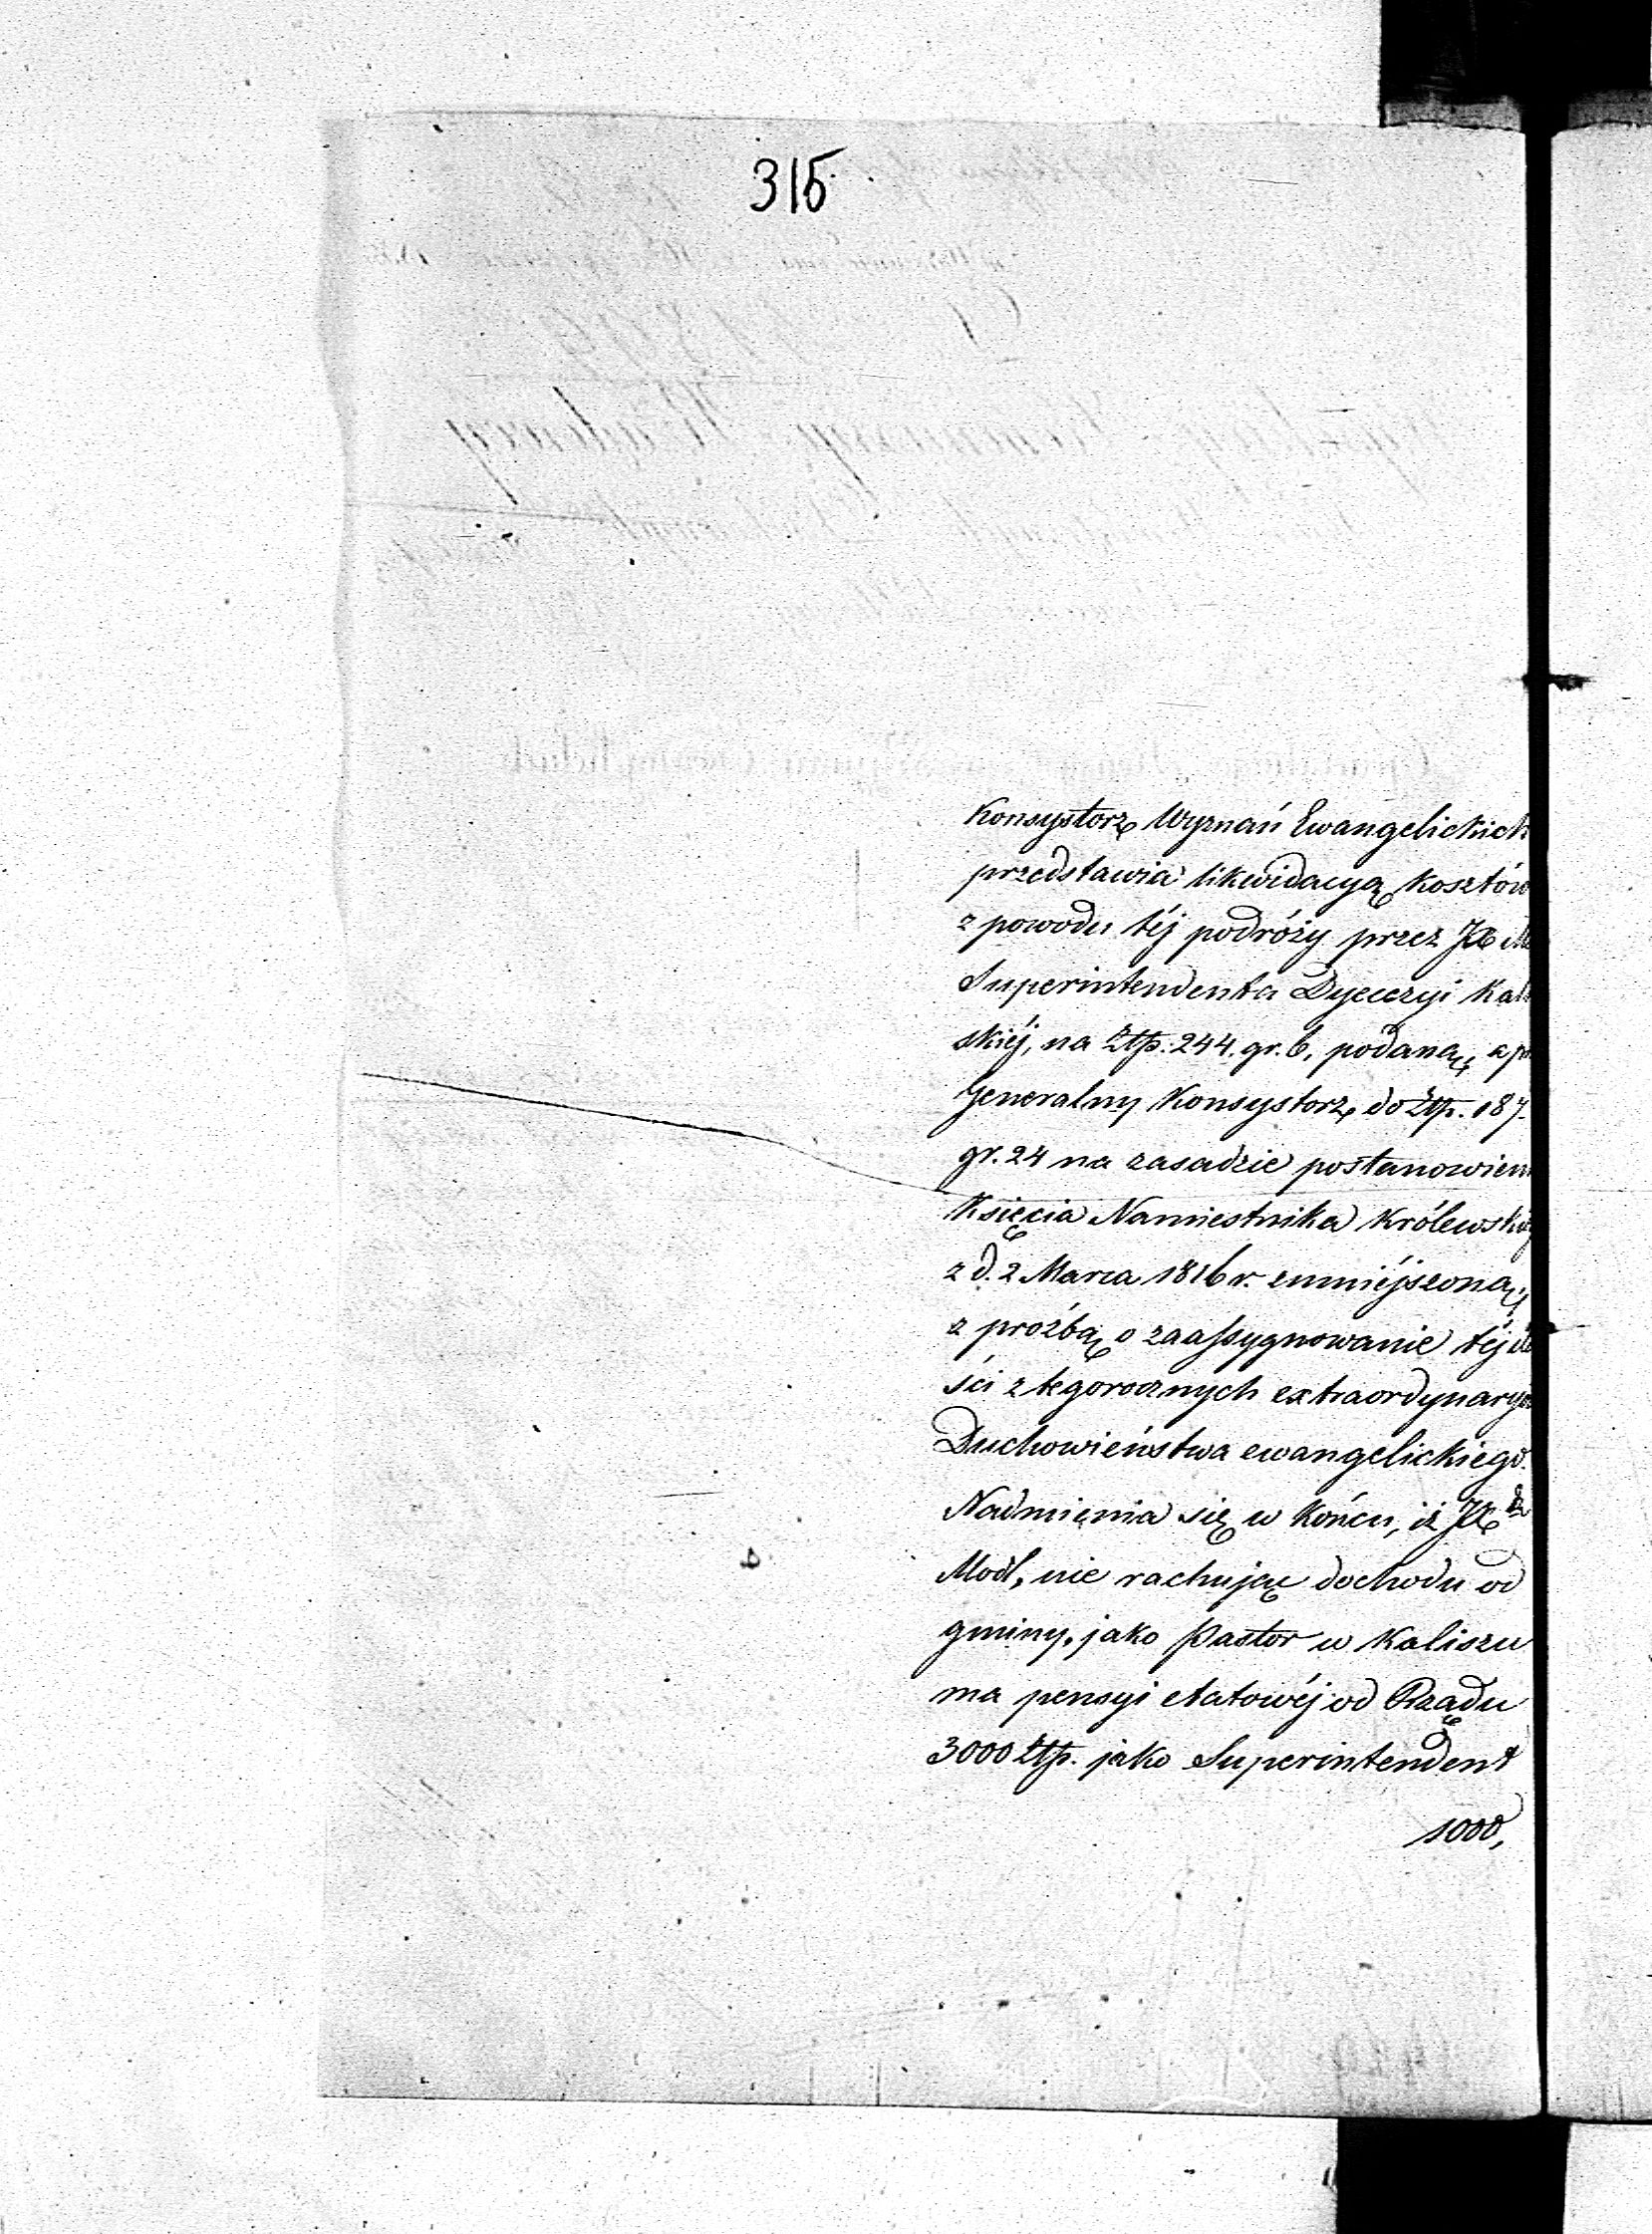 315.
Konsystorz Wyznań Ewangelickich
przedstawia likwidacyą kosztów
z powodu téj podróży przez JX
Superintendenta Dyecezyi Kali
skiéj, na Złp. 244. gr. 6, podaną, a p
Generalny Konsystorz, do Złp. 187.
gr. 24 na zasadzie postanowien
Księcia Namiestnika Królewski
z d. 2 Marca 1816 r. zmniéjszoną,
z proźbą o zaassygnowanie téj
ści z tegorocznych extraordynary
Duchowieństwa ewangelickiego.
Nadmienia się w końcu, iż JX
Modl, nie rachując dochodu od
gminy, jako Pastor w Kaliszu
ma pensyi etatowéj od Rządu
3000 Złp. jako Superintendent
1000,